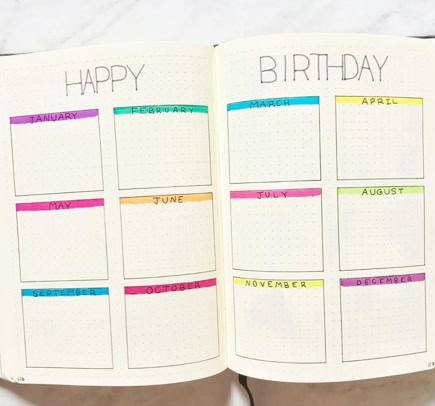 HAPPY BIRTHDAY
JANUARY FEBRUARY MARCH APRIL
MAY JUNE JULY AUGUST
SEPTEMBER OCTOBER NOVEMBER DECEMBER